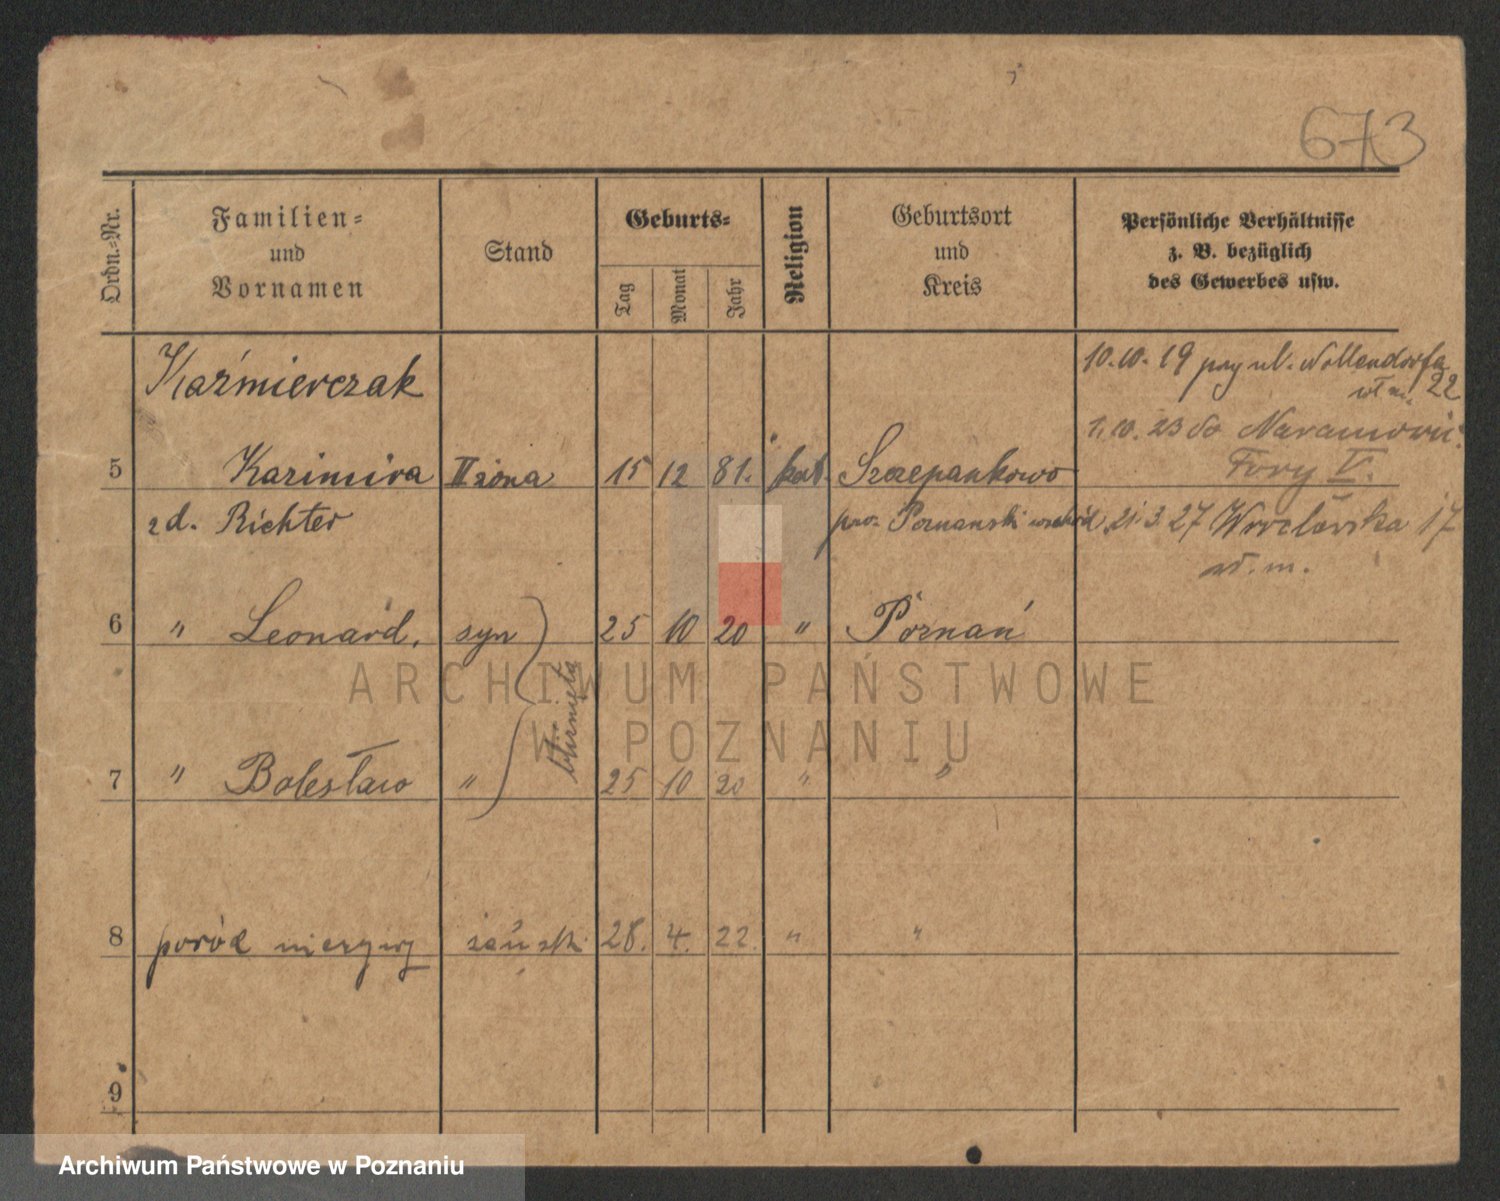 673
Ordn.=Nr.
Familien=
und
Vornamen
Stand
Geburts=
Tag
Monat
Jahr
Religion
Geburtsort
und
Kreis
Persönliche Verhältnisse
z. B. bezüglich
des Gewerbes usw.
Kaźmierczak
10.10.19 przy ul. Nollendorfa
22
1.10.23 do
5 Kazimira II żona 15 12 81. kat. Szczepankowo
Fory V.
zd. Richter
pow. Poznanski wschód 21.3.27 Wrocławska 17
w. m.
6 " Leonard, syn 25 10 20 " Poznań
bliźnięta
7 " Bolesław " 25 10 20 " "
8 poród nieżywy żeńsk. 28. 4. 22. " "
9
ARCHIWUM PAŃSTWOWE
W POZNANIU
Archiwum Państwowe w Poznaniu